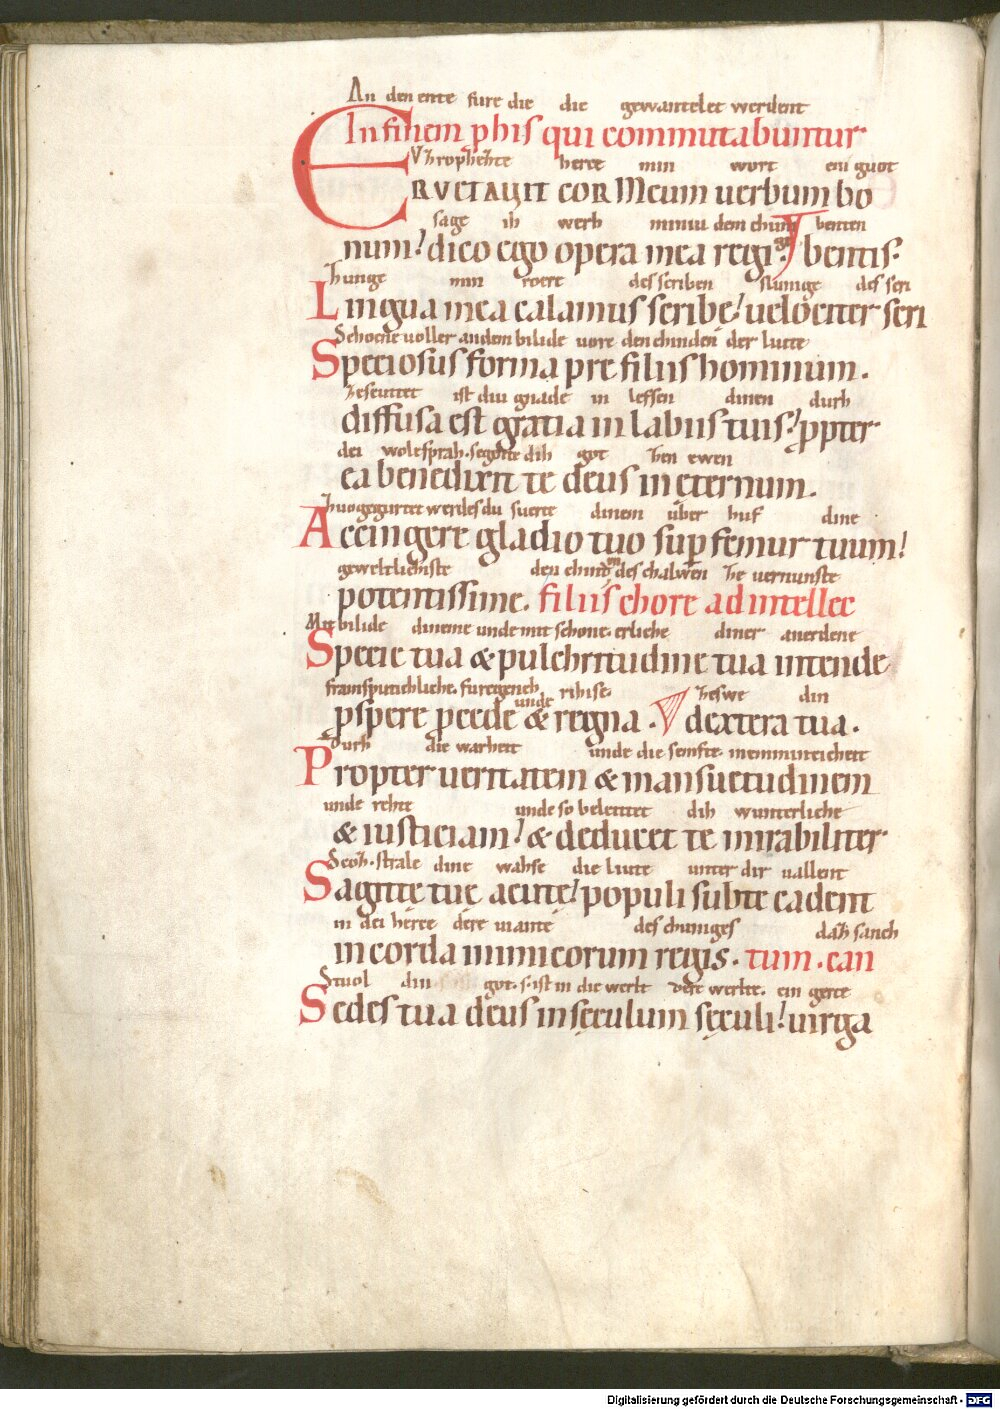 An den ente fure die die gewantelet werdent
In finem phis qui commutabuntur
Vhropheħte herce min wort ein guot
ERVCTAVIT COR Meum uerbum bo
sage ih werh miniu dem chunige benten
num! dico ego opera mea regi. bentis.
hunge min roere des scriben sliunige des scri
Lingua mea calamus scribę! uelociter scri
Schoene uoller andem bilide uore den chinden der liute
Speciosus forma pre filiis hominum.
heseuttet ist diu gnade in leffen dinen durh
diffusa est gratia in labiis tuis! ppter
dei wolesprah. segote dih got hen ewen
ea benedixit te deus in eternum.
huogegurtet werdes du suerte dinem über huf dine
Accingere gladio tuo sup femur tuum!
geweltlichiste den chinden des chalwen he uernunste
potentissime. filiis chore ad intellec
Mit bilide dineme unde mit schone. erliche diner anerdene
Specie tua & pulchritudine tua intende
framspuotichliche. furegench unde rihise. heswe din
pspere pcede & regna. dextera tua.
Durh die warheit unde die semfte. memmuntcicheit
Propter ueritatem & mansuetudinem
unde rehte unde so beleittet dih wunterliche
& iusticiam! & deducet te mirabiliter
Scoh. strale dine wahse die liute unter dir uallent
Sagitte tue acutę! populi subte cadent
in dei herce dere uiante des chuniges daħ sanch
in corda inimicorum regis. tum. can
Stuol din got. s. ist in die werlt dere werlte. ein gerte
Sedes tua deus in sęculum sęculi! uirga
Digitalisierung gefördert durch die Deutsche Forschungsgemeinschaft - DFG